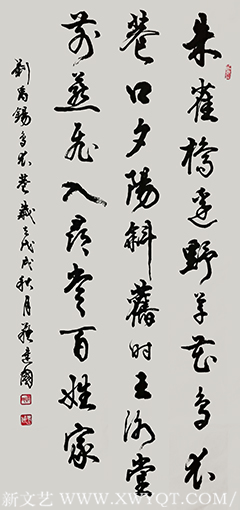 朱雀橋邊野草花烏衣
巷口夕陽斜舊時王謝堂
前燕飛入尋常百姓家
劉禹錫烏衣巷歲之戊戌秋月建國
新文艺 WWW.XWYQT.COM/